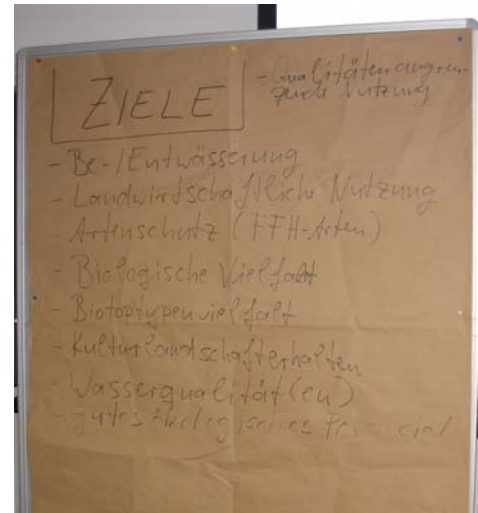 ZIELE
- Qualitäten angren-
zende Nutzung
- Be-/Entwässerung
- Landwirtschaftliche Nutzung
- Artenschutz (FFH-Arten)
- Biologische Vielfalt
- Biotoptypenvielfalt
- Kulturlandschafterhalten
- Wasserqualität(en)
- gutes ökologisches Potenzial